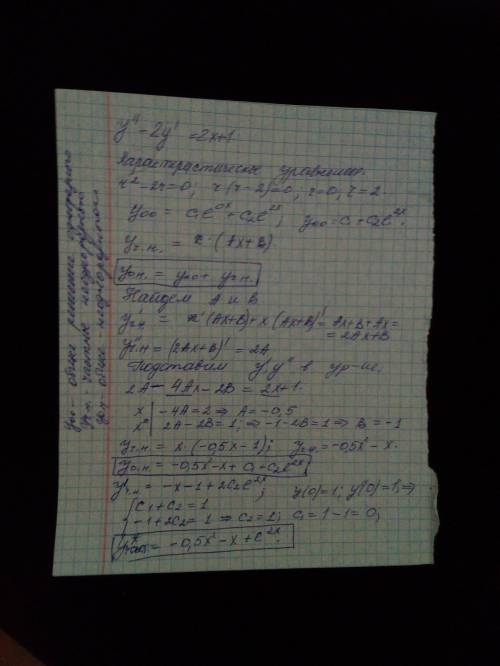 y'' - 2y' = 2x+1.
Характеристическое уравнение.
r² - 2r = 0; r(r-2)=0, r=0, r=2.
yоо = c₁e^0x + c₂e^2x; yоо = c₁ + c₂e^2x.
yч.н. = x·(Ax+B)
yон. = yоо + yч.н.
Найдем A и B
y'чн = x'(Ax+B)+x(Ax+B)' = Ax+B+Ax=
= 2Ax+B
y''ч.н = (2Ax+B)' = 2A
Подставим y', y'' в ур-ие.
2A - 4Ax - 2B = 2x+1.
x | -4A=2 ⇒ A=-0,5
x⁰ | 2A-2B=1; ⇒ -1-2B=1 ⇒ B=-1
yч.н. = x·(-0,5x-1); yч.н. = -0,5x² - x.
yо.н. = -0,5x² - x + c₁ + c₂e^2x
y'ч.н. = -x-1+2c₂e^2x; y(0)=1; y'(0)=1; ⇒
{ c₁+c₂=1
-1+2c₂=1 ⇒ c₂=1; c₁=1-1=0;
= -0,5x² - x + e^2x.
yоо - общее решение однородного
yч.н. - частное неоднородного
yон общее неоднородного